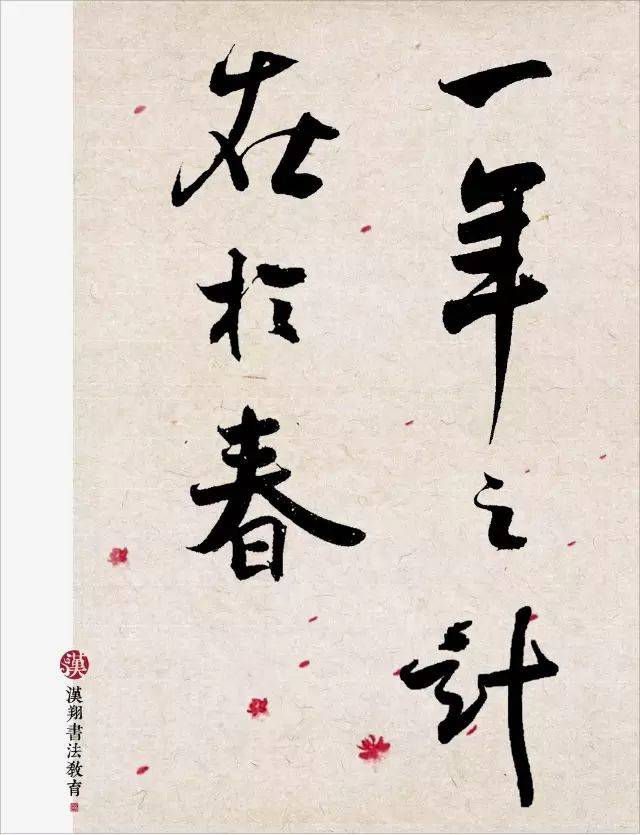 一年之计
在於春
漢
漢翔書法教育